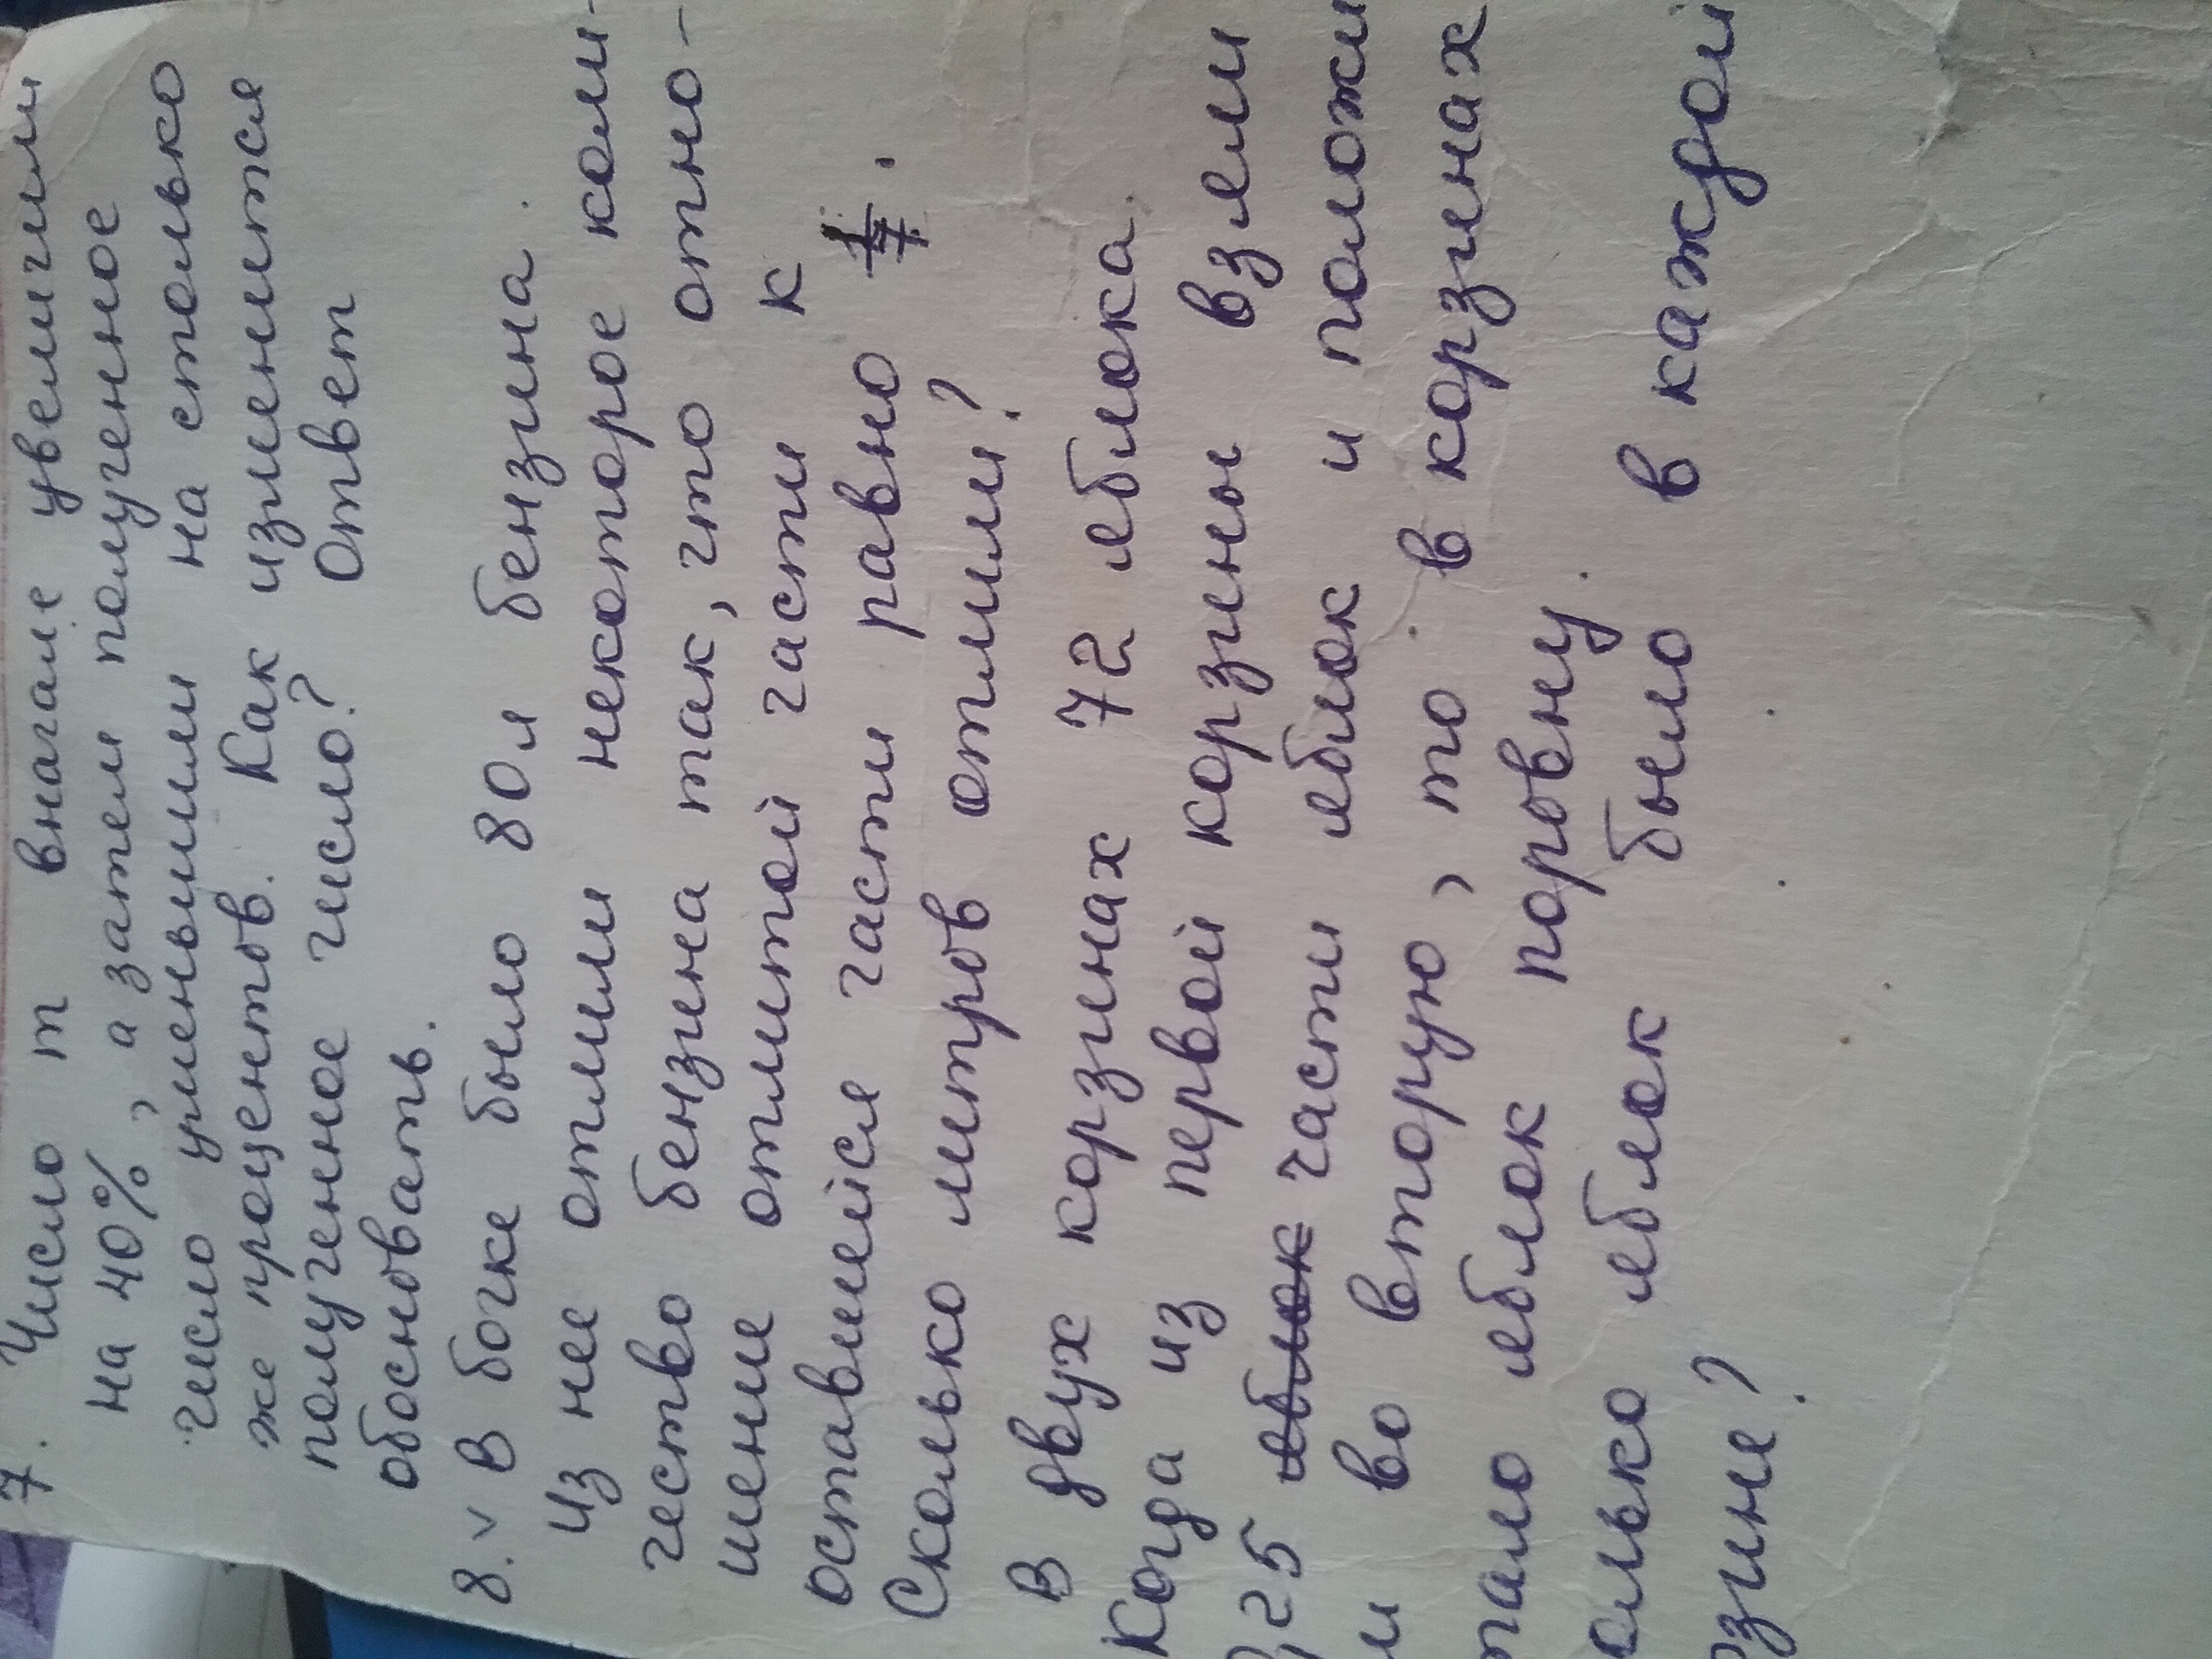 7. Число m вначале увеличили
на 40%, а затем полученное
число уменьшили на столько
же процентов. Как изменится
полученное число? Ответ
обосновать.
8. v В бочке было 80л бензина.
Из нее отлили некоторое коли-
чество бензина так, что отно-
шение отлитой части к
оставшейся части равно 1/7.
Сколько литров отлили?
В двух корзинах 72 яблока.
Когда из первой корзины взяли
0,25 яблок части яблок и положи
и во вторую, то в корзинах
тало яблок поровну.
олько яблок было в каждой
зине?